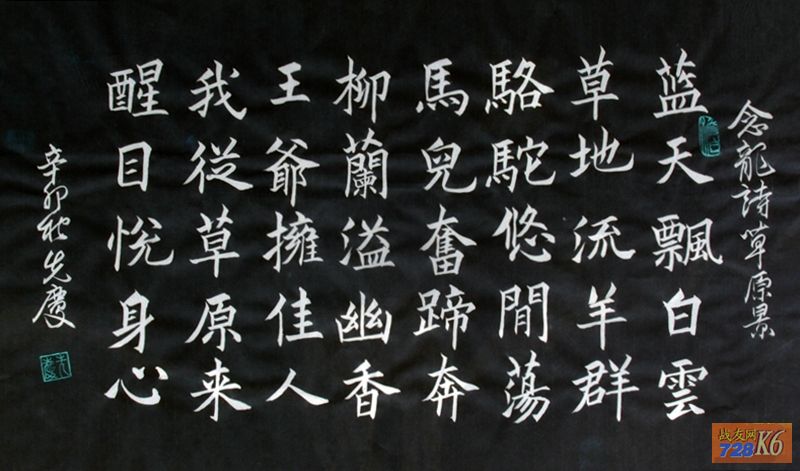 念龍詩草原景
蓝天飄白雲
草地流羊群
駱駝悠閒蕩
馬兒奮蹄奔
柳蘭溢幽香
王爺擁佳人
我從草原来
醒目悦身心
辛卯秋先慶
战友网
728 K6